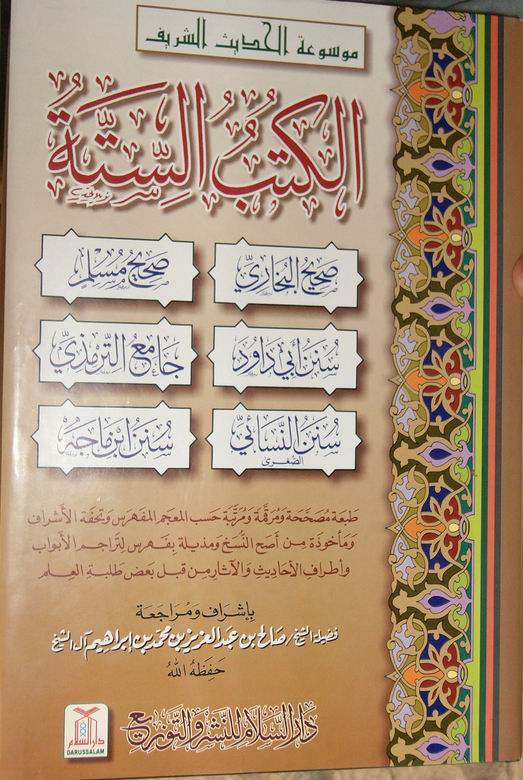 موسوعة الحديث الشريف
الكتب الستة
صحيح البخاري
صحيح مسلم
سنن أبي داود
جامع الترمذي
سنن النسائي
الصغرى
سنن ابن ماجه
طبعة مصححة ومرقمة ومرتبة حسب المعجم المفهرس وتحفة الأشراف
ومأخوذة من أصح النسخ ومذيلة بفهرس لتراجم الأبواب
وأطراف الأحاديث والآثار من قبل بعض طلبة العلم
بإشراف ومراجعة
فضيلة الشيخ/صالح بن عبد العزيز بن محمد بن إبراهيم آل الشيخ
حفظه الله
دار السلام للنشر والتوزيع
دار السلام
DARUSSALAM